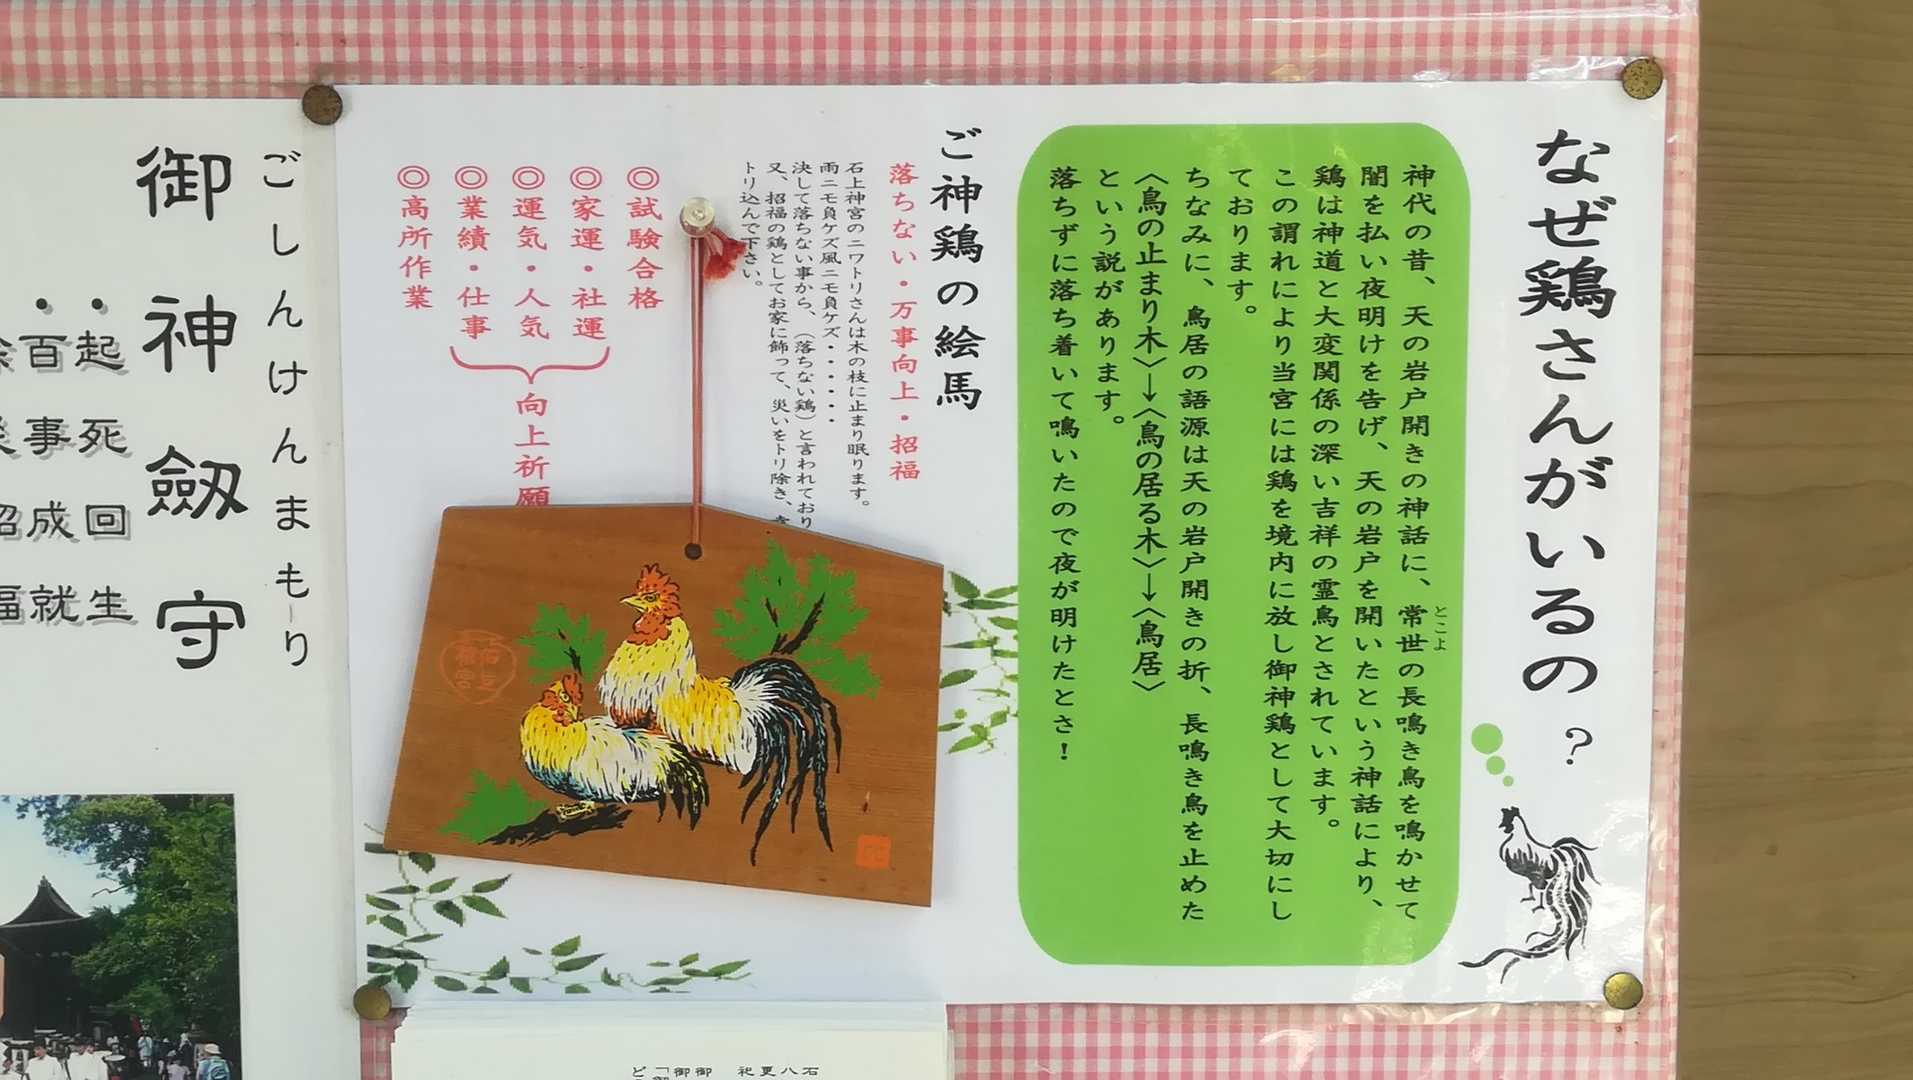 なぜ鶏さんがいるの?
神代の昔、天の岩戸開きの神話に、常世の長鳴き鳥を鳴かせて
とこよ
闇を払い夜明けを告げ、天の岩戸を開いたという神話により、
鶏は神道と大変関係の深い吉祥の霊鳥とされています。
この謂れにより当宮には鶏を境内に放し御神鶏として大切にし
ております。
ちなみに、鳥居の語源は天の岩戸開きの折、長鳴き鳥を止めた
〈鳥の止まり木〉→〈鳥の居る木〉→〈鳥居〉
という説があります。
落ちずに落ち着いて鳴いたので夜が明けたとさ!
ご神鶏の絵馬
落ちない・万事向上・招福
石上神宮のニワトリさんは木の枝に止まり眠ります。
雨ニモ負ケズ風ニモ負ケズ・・・・・・
決して落ちない事から、(落ちない鶏)と言われており
又、招福の鶏としてお家に飾って、災いをトリ除き、
トリ込んで下さい。
◎試験合格
◎家運・社運
◎運気・人気
◎業績・仕事
◎高所作業
向上祈願
ごしんけんまもり
御神劔守
・起死回生
・百事成就
招福